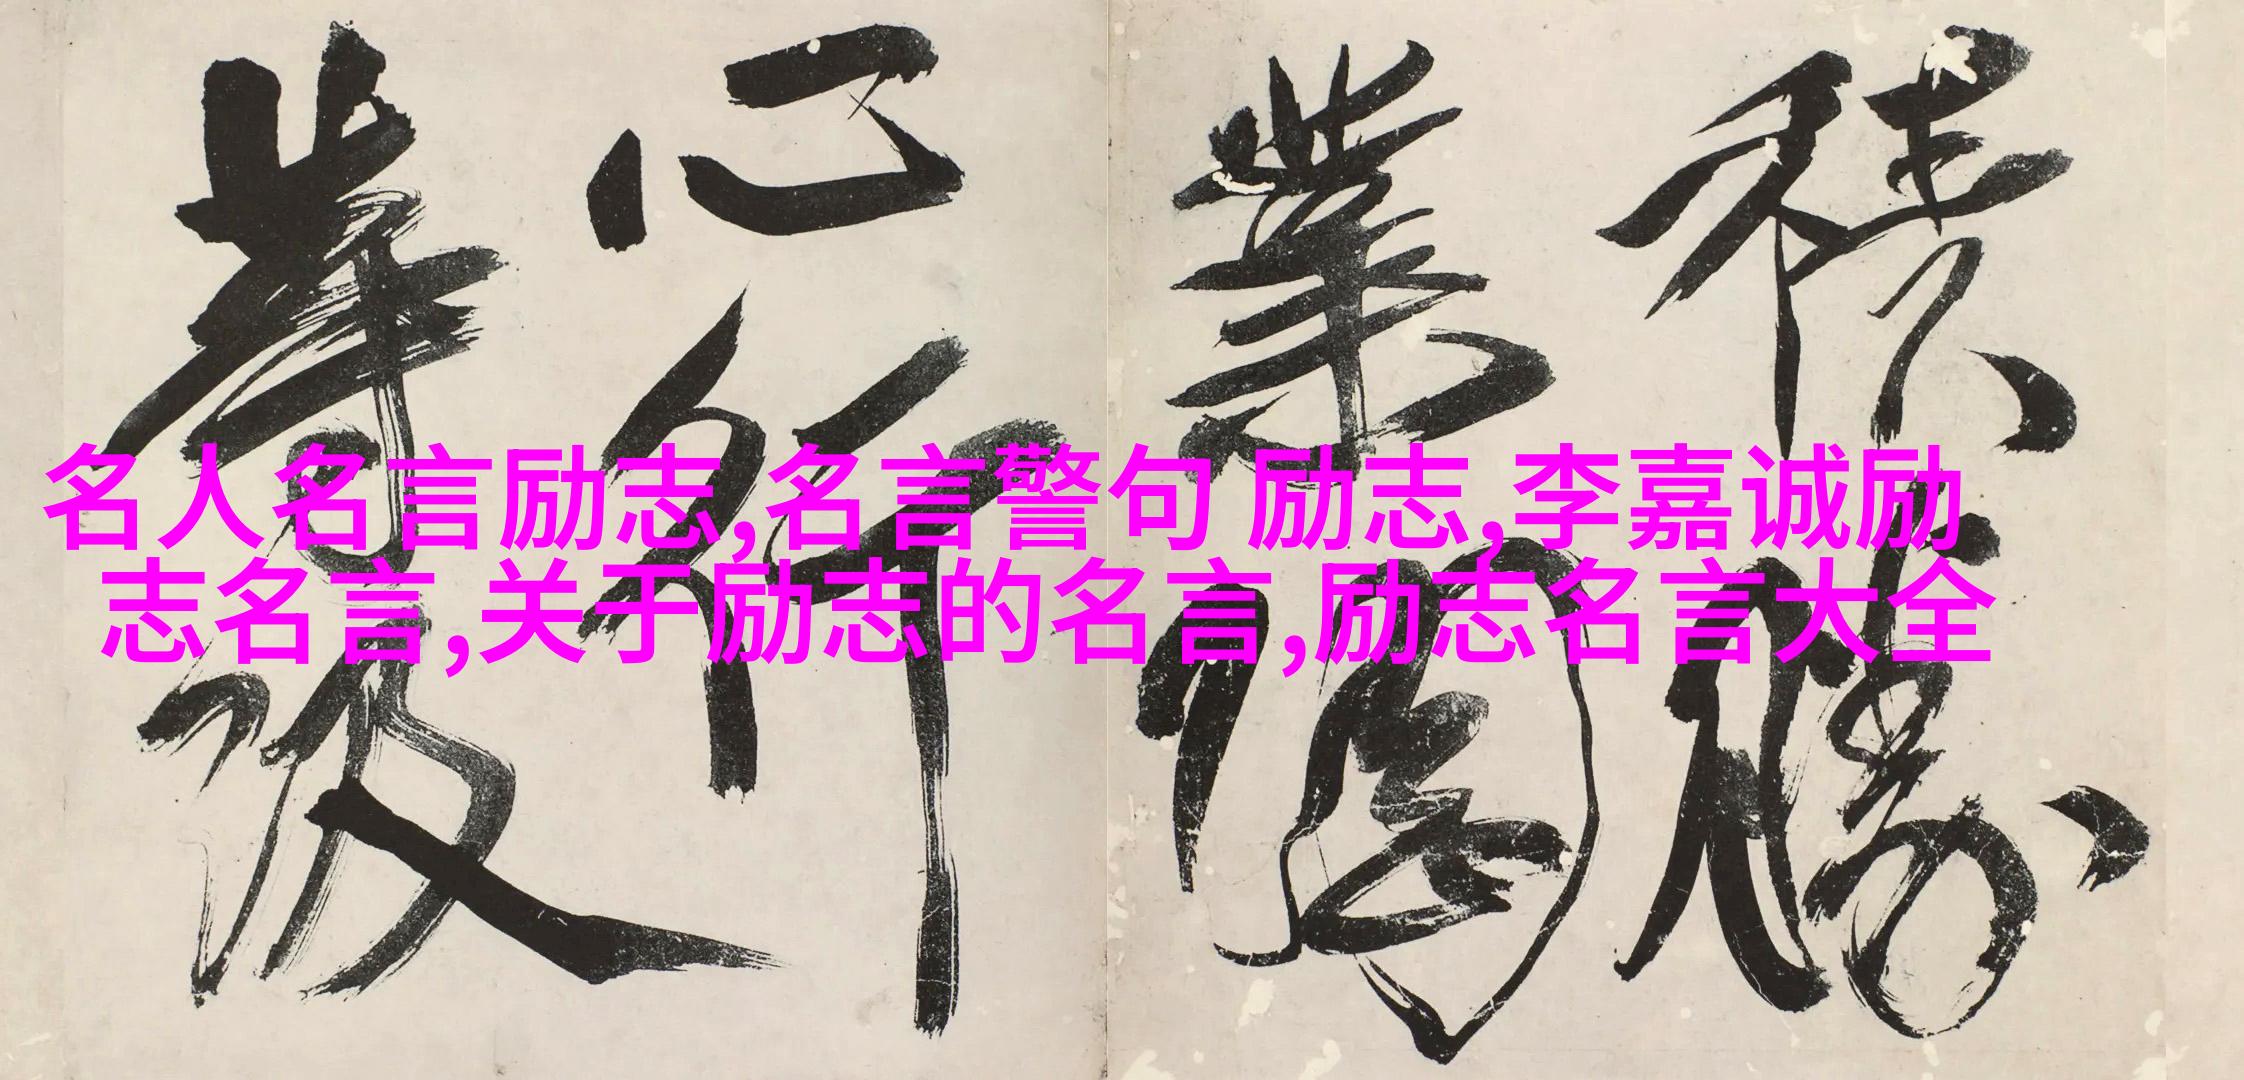 名人名言励志,名言警句 励志,李嘉诚励
志名言,关于励志的名言,励志名言大全
積勝
業因
心所